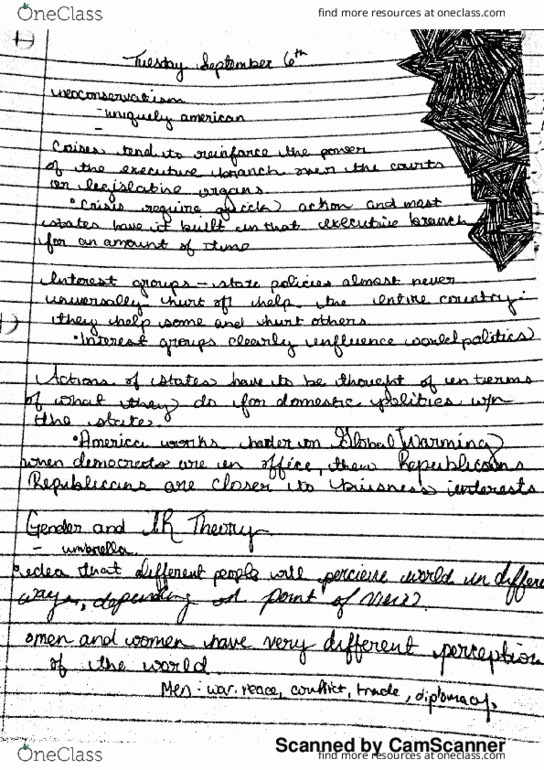 OneClass
find more resources at oneclass.com
Tuesday September 6th
neoconservatism
- uniquely american
-
Crises tend to reinforce the power
of the executive branch over the courts
or legislative organs.
• Crisis require quick action and most
states have it built in that executive branch
for an amount of time
Interest groups - state policies almost never
universally hurt or help the entire country.
they help some and hurt others
• Interest groups clearly influence world politics
Actions of states have to be thought of in terms
of what they do for domestic politics w/n
the state.
• America works harder on Global Warming
when democrats are in office, then Republicans
Republicans are closer to buisness interests
Gender and IR Theory
- umbrella
idea that different people will percieve world in differe
ways, depending on point of view.
men and women have very different perception
of the world
Men: war, peace, conflict, trade, diplomacy,
Scanned by CamScanner
OneClass
find more resources at oneclass.com